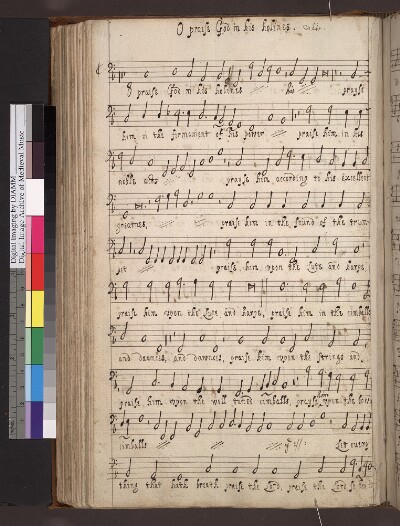 O praise God in his holines.
O praise God in his holines his prayse
him in the firmament of his power praise him in his
noble acts prayse him according to his excellent
greatnes, praise him in the sound of the trum-
pet praise him upon the Lute and harpe,
praise him upon the Lute and harpe, praise him in the cimballs
and daunces, and daunces, praise him upon the strings and
praise him upon the well tuned cimballs, prayse upon the
cimballs Let every
thing that hath breath praise the Lord, praise the Lord
Digital Imaging by DIAMM
Digital Image Archive of Medieval Music